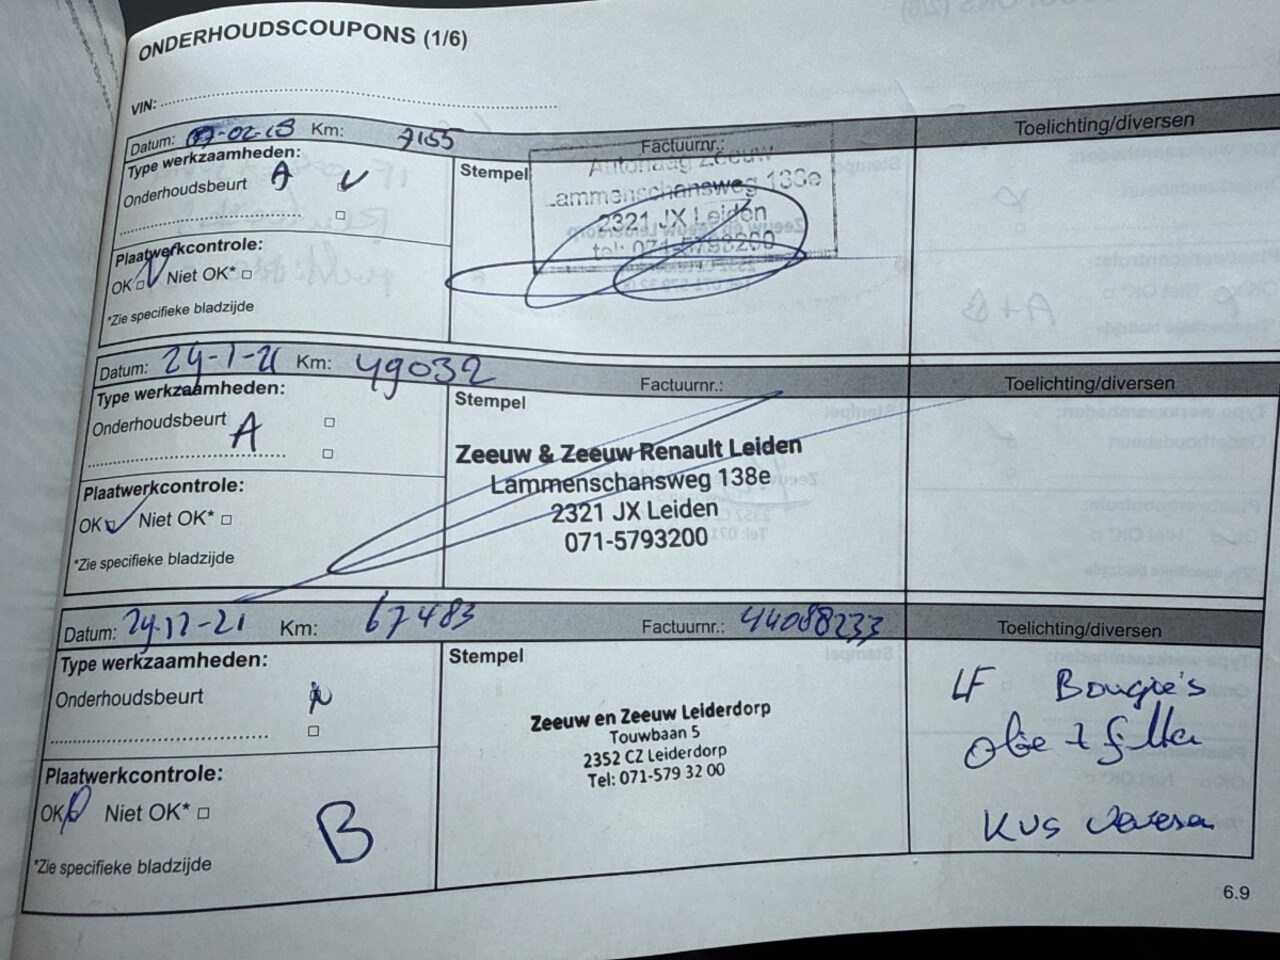 ONDERHOUDSCOUPONS (1/6)
VIN:
Datum: 07-02-18 Km: 7155 Factuurnr.: Toelichting/diversen
Type werkzaamheden:
Onderhoudsbeurt A
Plaatwerkcontrole:
OK Niet OK*
*Zie specifieke bladzijde
Stempel
Lammenschansweg 138e
2321 JX Leiden
tel: 071-5793200
Datum: 29-1-21 Km: 49032 Factuurnr.: Toelichting/diversen
Type werkzaamheden:
Onderhoudsbeurt A
Plaatwerkcontrole:
OK Niet OK*
*Zie specifieke bladzijde
Stempel
Zeeuw & Zeeuw Renault Leiden
Lammenschansweg 138e
2321 JX Leiden
071-5793200
Datum: 29-12-21 Km: 67483 Factuurnr.: 44088233 Toelichting/diversen
Type werkzaamheden:
Onderhoudsbeurt
Plaatwerkcontrole:
OK Niet OK*
B
*Zie specifieke bladzijde
Stempel
Zeeuw en Zeeuw Leiderdorp
Touwbaan 5
2352 CZ Leiderdorp
Tel: 071-579 32 00
LF Bougie's
Olie + filter
6.9